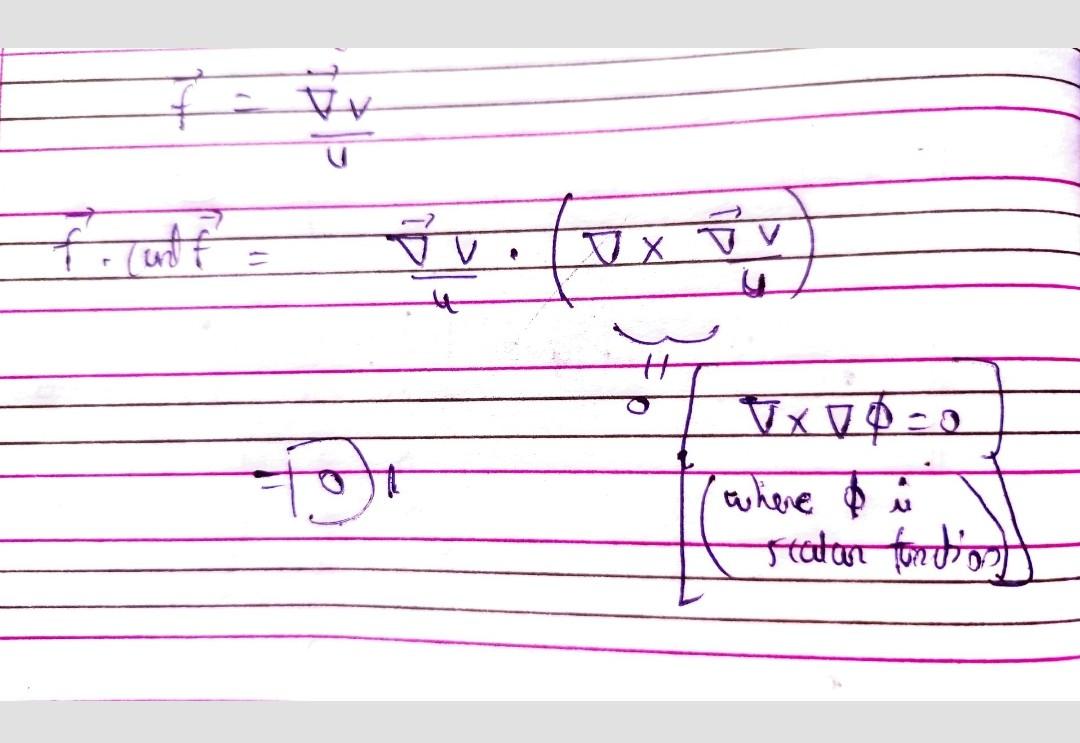 f⃗ = ∇⃗v/u
f⃗ . curl f⃗ = ∇⃗v/u . (∇ × ∇⃗v/u)
||
0
∇ × ∇ϕ = 0
= 0
(where ϕ is
scalar function)